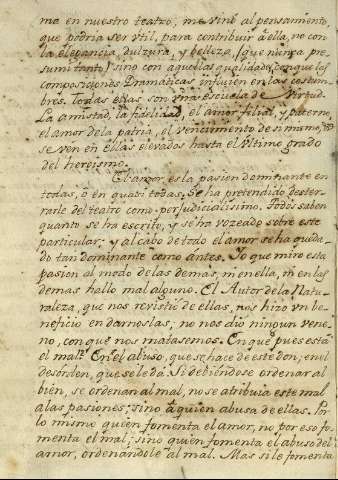 mo en nuestro teatro, me vino al pensamiento,
que podria ser util, para contribuir a ella, no con
la elegancia, dulzura, y belleza, (que nunca pre-
sumi tanto) sino con aquellas qualidades, con que las
composiciones Dramaticas influien en las costum-
bres. Todas ellas son una escuela de Virtud.
La amistad, la fidelidad, el amor filial, y paterno,
el amor de la patria, el vencimiento de si mismo,
se ven en ellas elevados hasta el ultimo grado
del heroismo.
El amor, es la pasion dominante en
todas, ò en quasi todas. Se ha pretendido dester-
rarle del teatro como perjudicialisimo. Todos saben
quanto se ha escrito, y se ha vozeado sobre este
particular: y al cabo de todo el amor se ha queda-
do tan dominante como antes. Yo que miro esta
pasion al modo de las demas, ni en ella, ni en las
demas hallo mal alguno. El Autor de la Natu-
raleza, que nos revistiò de ellas, nos hizo un be-
neficio en darnoslas, no nos diò ningun vene-
no, con que nos matasemos. En què pues està
el mal? En el abuso, que se hace de este don; en el
desorden, que se le dà. Si debiendose ordenar al
bien, se ordenan al mal, no se atribuia este mal
a las pasiones; sino à quien abusa de ellas. Por
lo mismo quien fomenta el amor, no por eso fo-
menta el mal; sino quien fomenta el abuso del
amor, ordenandole al mal. Mas si le fomenta